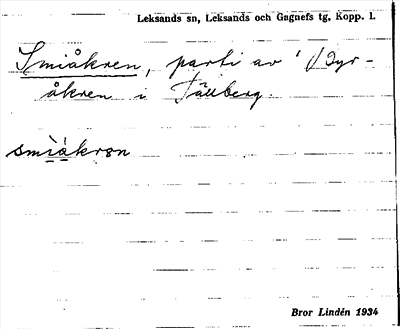 Leksands sn, Leksands och Gagnefs tg, Kopp. l.
Smiåkren, parti av
åkren i Tällberg.
smìàkrən
Bror Lindén 1934